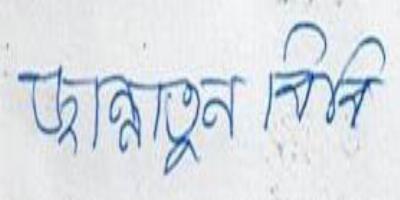 জান্নাতুন বিবি